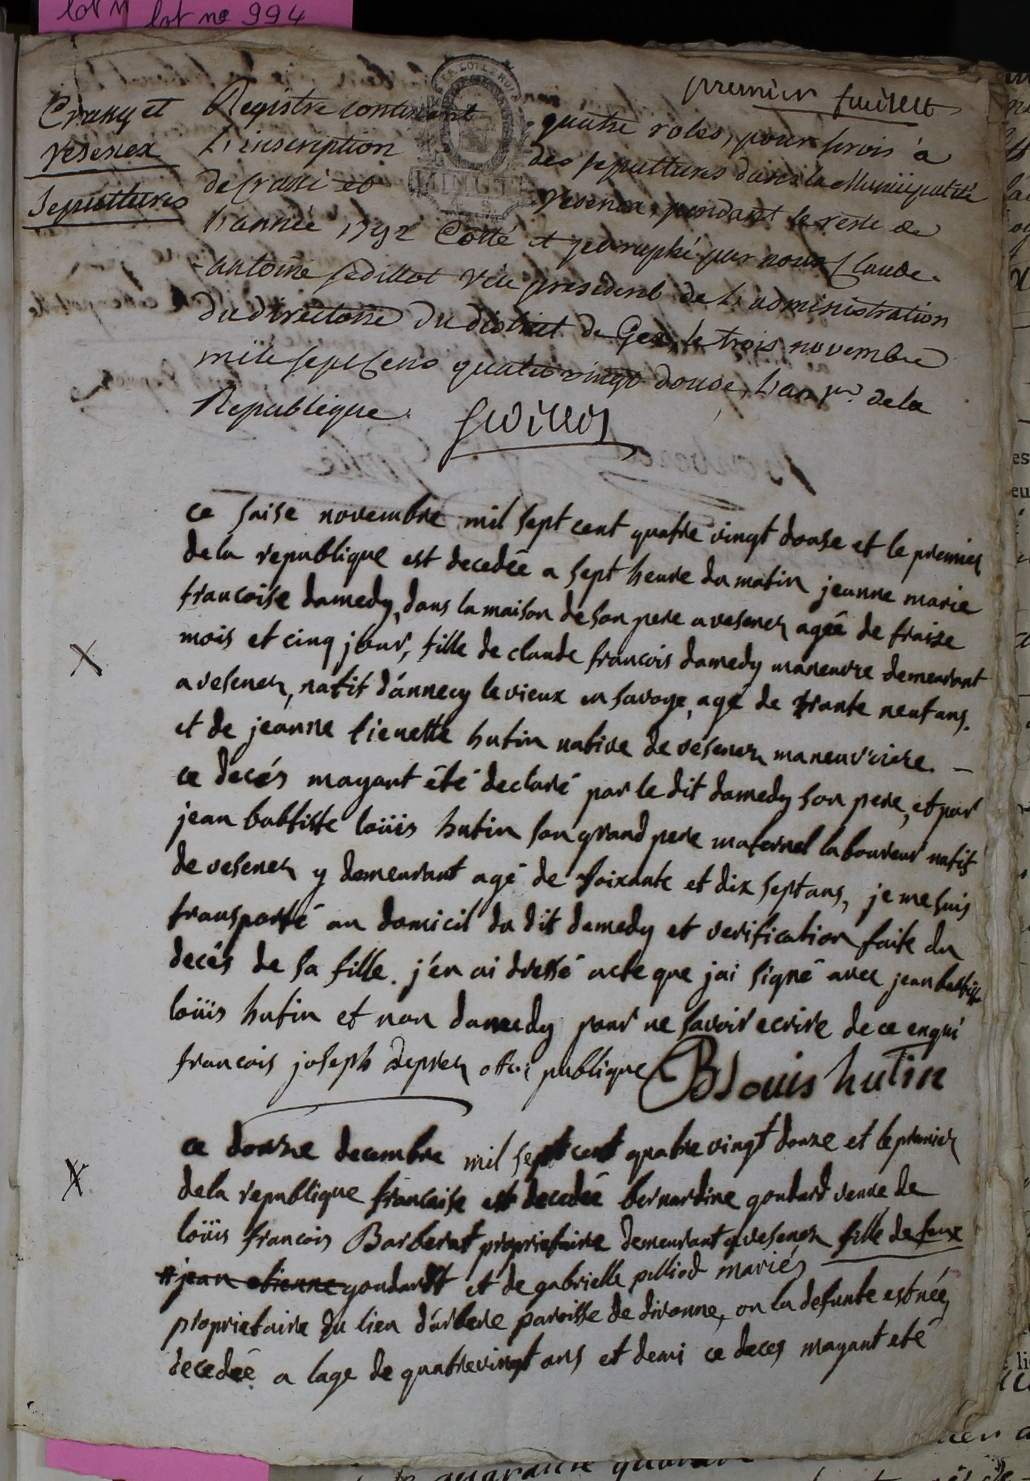 lot n lot no 994
premier feuillet
Crassy et
Vesenex
Sepultures
Registre contenant quatre roles, pour servir à
L'inscription des sepultures dans la Municipalité
de Crassi et Vesenex, pendant le reste de
L'année 1792 Cotté et paraphé par nous Claude
antoine Sedillot vice president de L'administration
du directoire du district de Gex, le trois novembre
mille sept cens quatre vingt douze, L'an 1er de la
Republique.
ce saise novembre mil sept cent quatre vingt douse et le premier
de la republique est decedée a sept heure du matin jeanne marie
francoise damedy, dans la maison de son pere a vesenex agée de fraize
mois et cinq jour, fille de claude francois damedy maneuvre demeurant
a vesenex, natif d'annecy le vieux en savoye, age de trante neuf ans.
et de jeanne lienette hutin native de vesenex maneuvriere. —
ce decés mayant été declaré par le dit damedy son pere, et par
jean babtiste loüis hutin son grand pere maternel laboureur natif
de vesenex y demeurant agé de soixante et dix sept ans, je me suis
transporté au domicil du dit damedy et verification faite du
decés de sa fille. j'en ai dressé acte que jai signé avec jean babtiste
loüis hutin et non damedy pour ne savoir ecrire de ce enqui
francois joseph deprez offi: publique B Louis hutin
ce douze decembre mil sept cent quatre vingt douze et le premier
de la republique francaise est decedée bernardine goudard veuve de
loüis francois Barberat proprietaire demeurant a vesenex fille de feux
# jean etienne goudardt et de gabrielle pelliod mariés
proprietaire du lieu d'arbere paroisse de divonne, ou la defunte est née,
decedeé a lage de quatrevingt ans et demi ce deces mayant eté